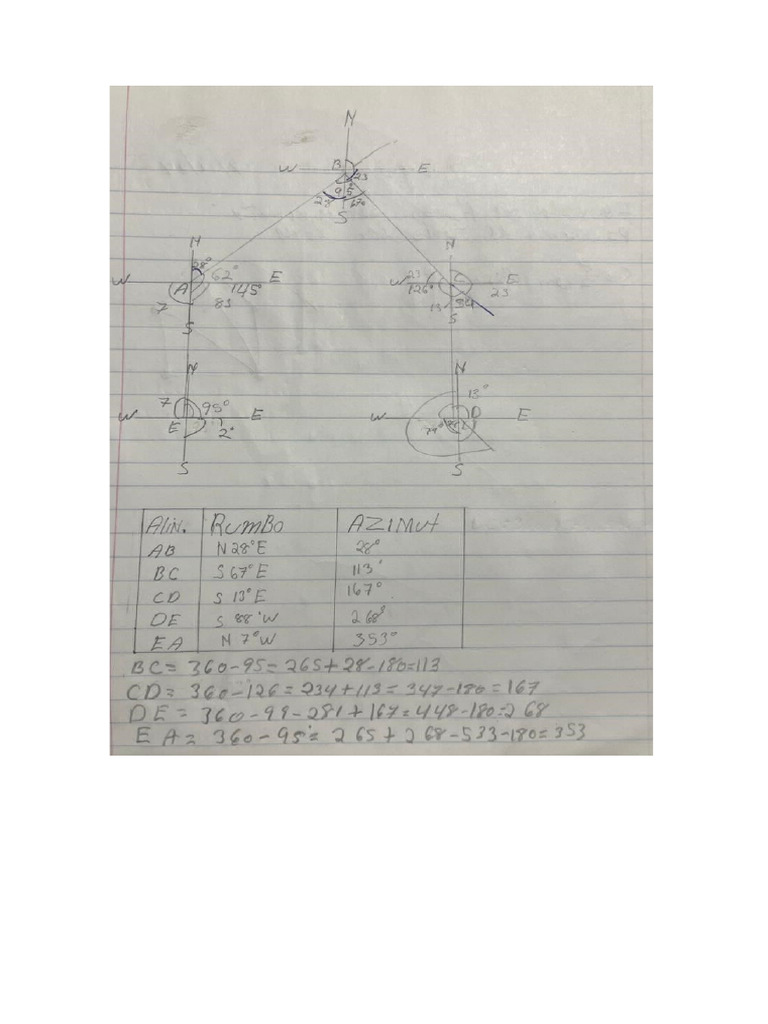 N
W B E
23
95
28° 67°
S
N N
28°
W A 62° E W 23 C E
145° 126° 23
7 83 13
S S
N N
7 95° 13°
W E E W D E
2°
S S
Alin. RumBo AZIMut
AB N 28° E 28°
BC S 67° E 113°
CD S 13° E 167°
DE S 88° W 268°
EA N 7° W 353°
BC = 360-95= 265+28-180=113
CD = 360-126=234+113=347-180=167
DE = 360-99-281+167=448-180=268
EA = 360-95= 265+268-533-180=353